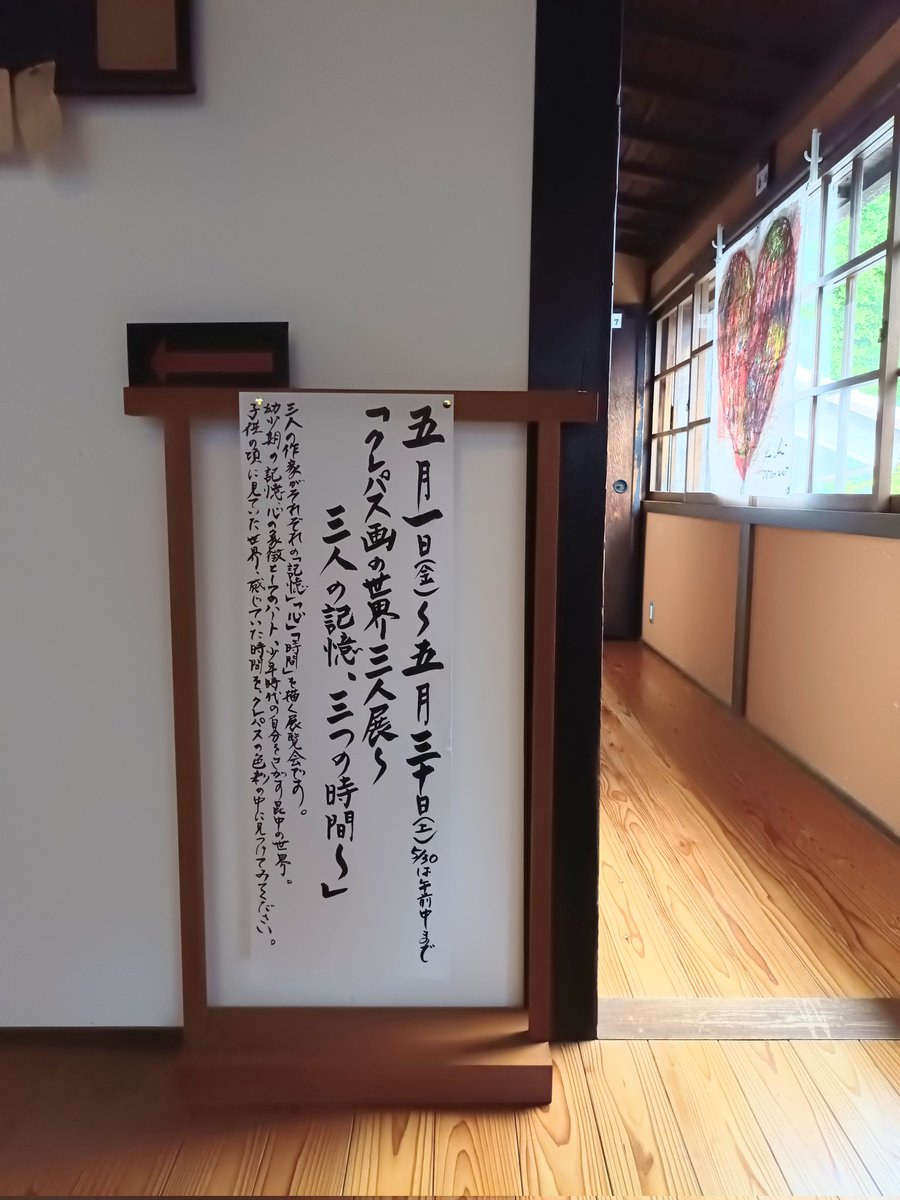 五月一日(金)〜五月三十日(土)5/30は午前中まで
「クレパス画の世界三人展〜
三人の記憶、三つの時間〜」
三人の作家がそれぞれの「記憶」「心」「時間」を描く展覧会です。
幼少期の記憶、心の象徴としてのハート、少年時代の自分をさがす昆虫の世界。
子供の頃に見ていた世界、感じていた時間を、クレパスの色彩の中に見つけてみてください。
7